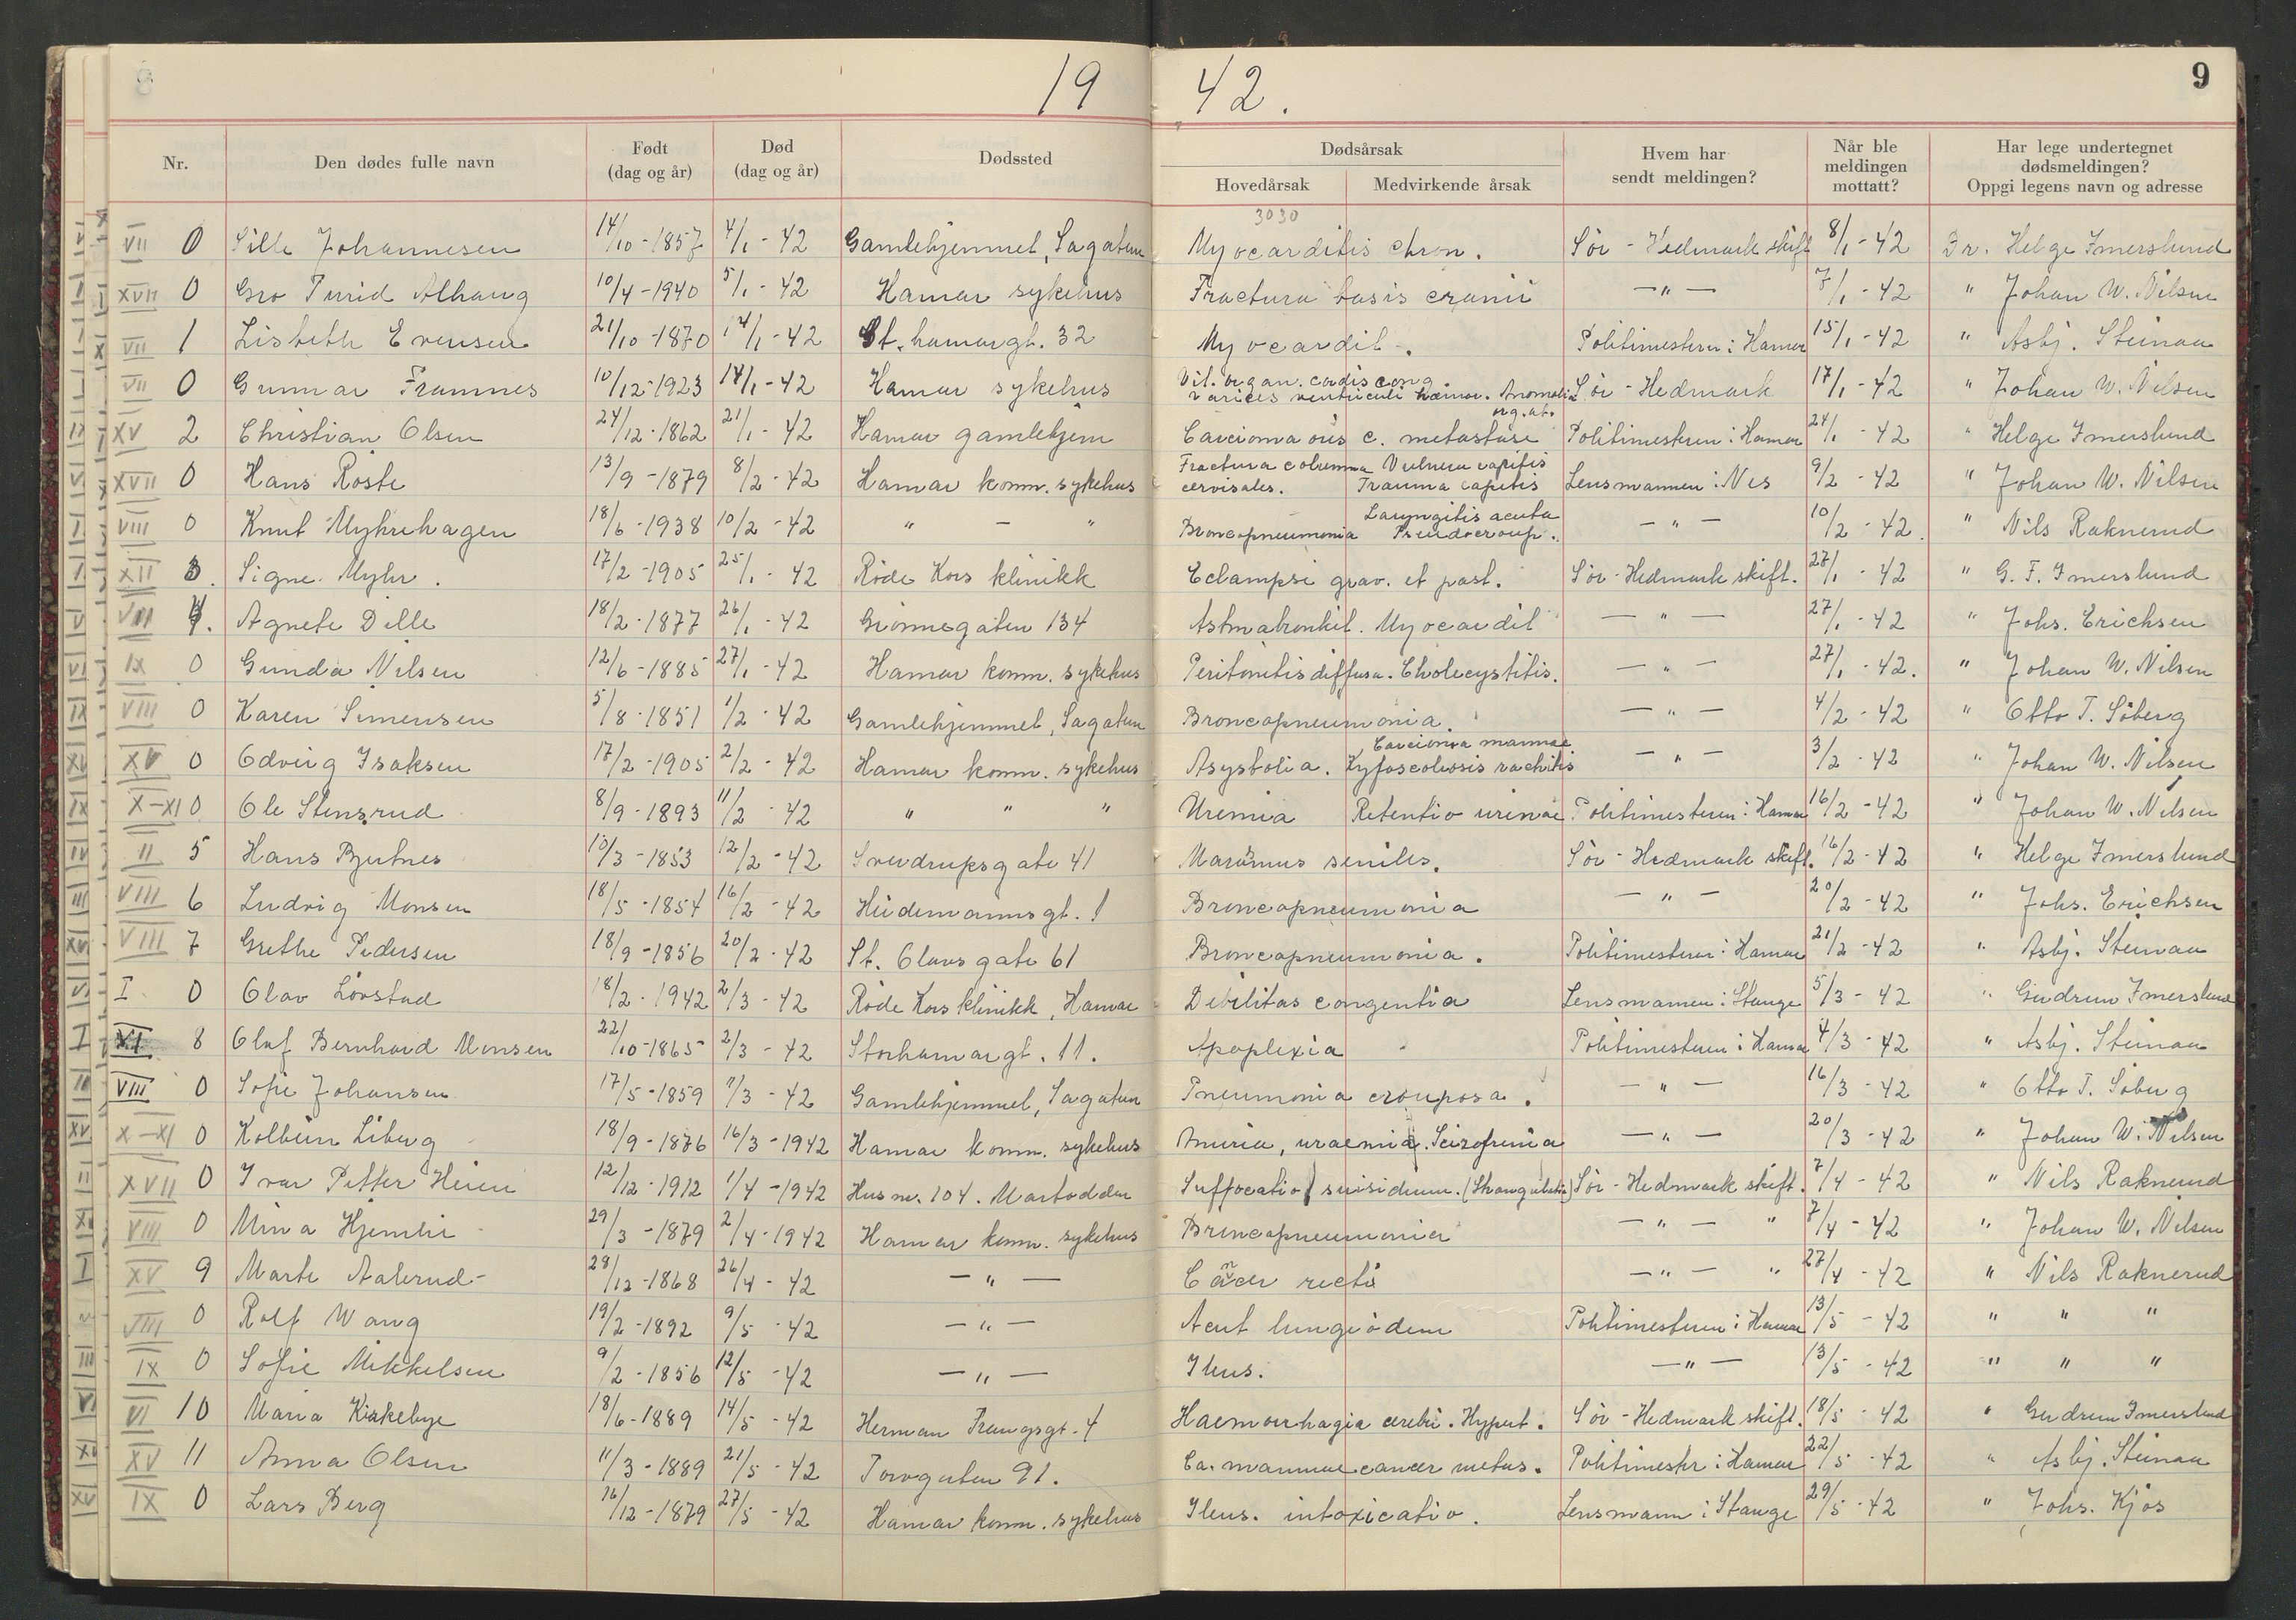 8
19 42.
9
Nr. Den dødes fulle navn Født (dag og år) Død (dag og år) Dødssted Dødsårsak Hovedårsak Medvirkende årsak Hvem har sendt meldingen? Når ble meldingen mottatt? Har lege undertegnet dødsmeldingen? Oppgi legens navn og adresse
3030
VII 0 Sille Johannesen 14/10-1857 4/1-42 Gamlehjemmet, Sagatun Myocarditis chron. Sör-Hedmark skift 8/1-42 Dr. Helge Imerslund
XVII 0 Gro Turid Alhaug 10/4-1940 5/1-42 Hamar sykehus Fractura basis cranii —"— 7/1-42 " Johan W. Nilsen
VII 1 Lisbeth Evensen 21/10-1870 14/1-42 St. hamargt. 32 Myocardit. Politimesteren i Hamar 15/1-42 " Asbj. Steinaa
VII 0 Gunnar Framnes 10/12-1923 14/1-42 Hamar sykehus Vit. organ. cordis cong. varices ventriculi hæmor. Anomalia org. ab. Sör-Hedmark 17/1-42 " Johan W. Nilsen
XV 2 Christian Olsen 24/12-1862 21/1-42 Hamar gamlehjem Carcioma oris c. metastase Politimesteren i Hamar 24/1-42 " Helge Imerslund
XVII 0 Hans Röste 13/9-1879 8/2-42 Hamar komm. sykehus Fractura columna cervisales. Vulnera capitis Trauma capitis Lensmannen i Nes 9/2-42 " Johan W. Nilsen
VIII 0 Knut Myhrehagen 18/6-1938 10/2-42 " — " Broncopneumonia Laryngitis acuta Pseudocroup. —"— 10/2-42. " Nils Raknerud
XII 3. Signe Myhr. 17/2-1905 25/1-42 Röde Kors klinikk Eclampsi grav. et part. Sör-Hedmark skift. 28/1-42 " G. F. Imerslund
VIII 4. Agnete Dille 18/2-1877 26/1-42 Grönnegaten 134 Astmabronkit. Myocardit —"— 27/1-42 " Johs. Erichsen
IX 0 Gunda Nilsen 12/6-1885 27/1-42 Hamar komm. sykehus Peritonitis diffusa. Cholecystitis. —"— 27/1-42. " Johan W. Nilsen
VIII 0 Karen Simensen 5/8-1851 1/2-42 Gamlehjemmet, Sagatun Broncopneumonia. —"— 4/2-42 " Otto T. Söberg
XV 0 Odveig Isaksen 17/2-1905 2/2-42 Hamar komm. sykehus Asystolia. Carcioma mammae Kyfoscoliosis rachitis —"— 3/2-42 " Johan W. Nilsen
X-XI 0 Ole Stensrud 8/9-1893 11/2-42 " " " Uremia Retentio urinae Politimesteren i Hamar 16/2-42 " Johan W. Nilsen
II 5 Hans Bjutnes 10/3-1853 12/2-42 Sverdrupsgate 41 Marasmus seniles. Sör-Hedmark skift. 16/2-42 " Helge Imerslund
VIII 6 Ludvig Monsen 18/5-1854 16/2-42 Heidemannsgt. 1 Broncopneumonia —"— 20/2-42 " Johs. Erichsen
VIII 7 Grethe Pedersen 18/9-1856 20/2-42 St. Olavs gate 61 Broncopneumonia. Politimesteren i Hamar 21/2-42 " Asbj. Steinaa
I 0 Olav Lövstad 18/2-1942 2/3-42 Röde Kors klinikk, Hamar Debilitas congentia Lensmannen i Stange 5/3-42 " Gudrun Imerslund
XI 8 Olaf Bernhard Monsen 22/10-1865 2/3-42 Storhamargt. 11. Apoplexia Politimesteren i Hamar 4/3-42 " Asbj. Steinaa
VIII 0 Sofie Johansen 17/5-1859 11/3-42 Gamlehjemmet, Sagatun Pneumonia crouposa. —"— 16/3-42 " Otto T. Söberg
X-XI 0 Kolbein Liberg 18/9-1876 16/3-1942 Hamar komm. sykehus Anuria, uraemia. Scizofrenia —"— 20/3-42 " Johan W. Nilsen
XVII 0 Ivar Petter Heien 12/12-1912 1/4-1942 Hus nr. 104. Martodden Suffocatio suisidium. (Strangulatio) Sör-Hedmark skift. 7/4-42 " Nils Raknerud
VIII 0 Mina Hjemlie 29/3-1879 2/4-1942 Hamar komm. sykehus Broncopneumonia —"— " 7/4-42 " Johan W. Nilsen
XV 9 Marte Aalerud 28/12-1868 26/4-42 —"— Cancer recti —"— " 27/4-42 " Nils Raknerud
VIII 0 Rolf Wang 19/2-1892 9/5-42 —"— Acut lungeödem Politimesteren i Hamar 13/5-42 " " "
IX 0 Sofie Mikkelsen 9/2-1856 12/5-42 —"— Ileus. —"— 13/5-42 " " "
VI 10 Maria Kirkebye 18/6-1889 14/5-42 Herman Frangsgt. 4 Haemorrhagia cerebri. Hypert. Sör-Hedmark skift. 18/5-42 " Gudrun Imerslund
XV 11 Anna Olsen 11/3-1889 21/5-42 Torvgaten 91. Ca. mammae cancer metas. Politimestr i Hamar 22/5-42 " Asbj. Steinaa
IX 0 Lars Berg 16/12-1879 27/5-42 Hamar komm. sykehus Ileus. intoxicatio. Lensmann i Stange 29/5-42 " Johs. Kjös